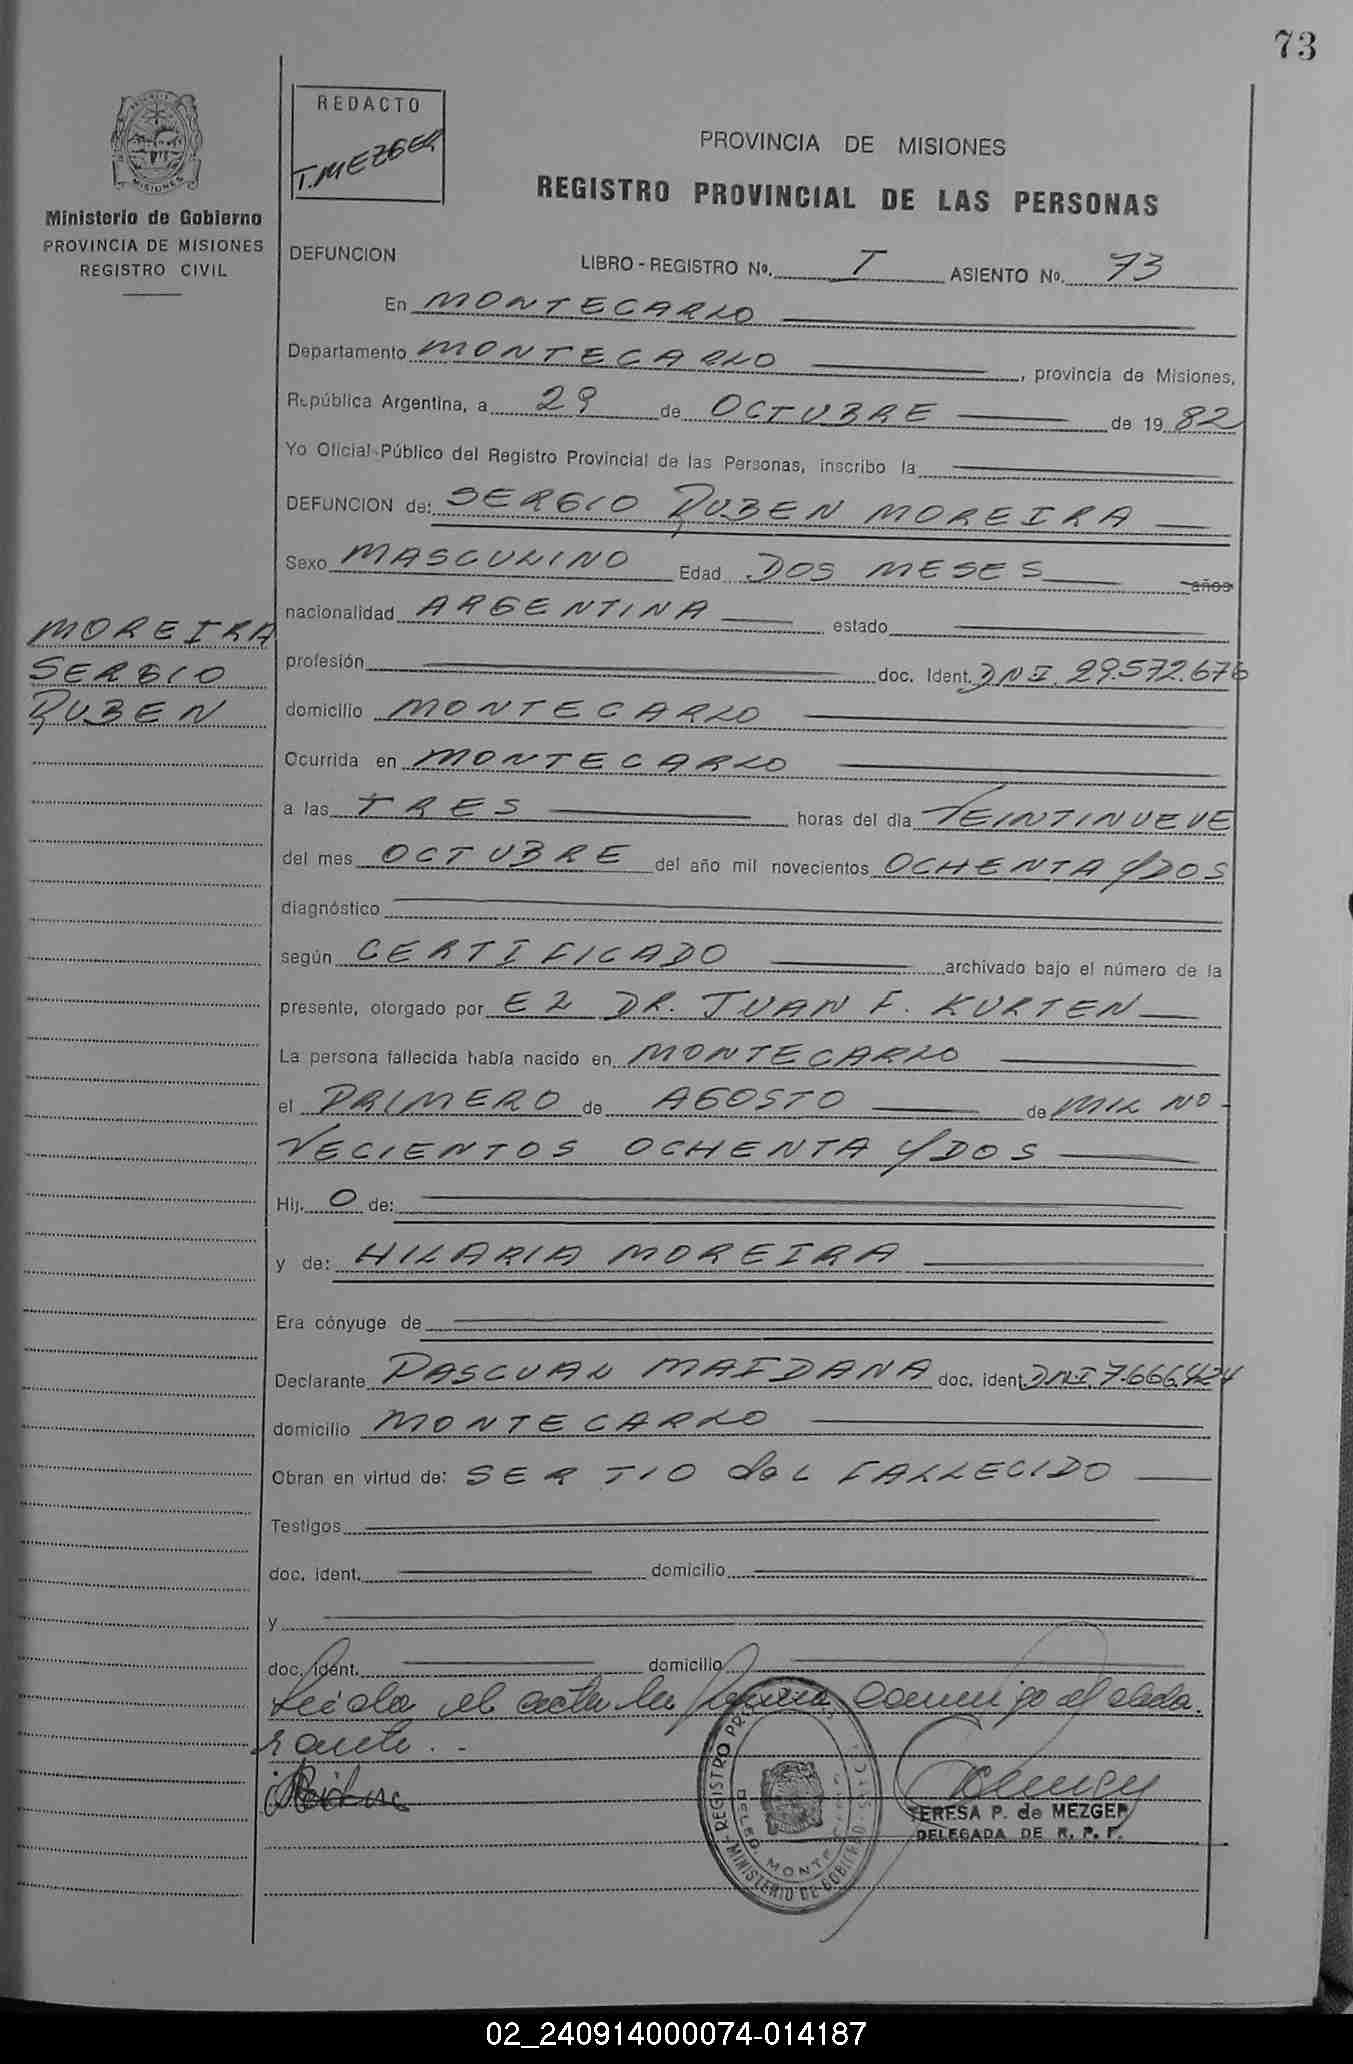 73
REDACTO
T. MEZGER
PROVINCIA DE MISIONES
REGISTRO PROVINCIAL DE LAS PERSONAS
MISIONES
Ministerio de Gobierno
PROVINCIA DE MISIONES
REGISTRO CIVIL
DEFUNCION LIBRO - REGISTRO Nº. I ASIENTO Nº. 73
En MONTECARLO
Departamento MONTECARLO, provincia de Misiones,
República Argentina, a 29 de OCTUBRE de 19 82
Yo Oficial Público del Registro Provincial de las Personas, inscribo la
DEFUNCION de: SERGIO RUBEN MOREIRA
Sexo MASCULINO Edad DOS MESES años
nacionalidad ARGENTINA estado
MOREIRA
SERGIO
RUBEN
profesión doc. Ident. DNI. 29.572.676
domicilio MONTECARLO
Ocurrida en MONTECARLO
a las TRES horas del día VEINTINUEVE
del mes OCTUBRE del año mil novecientos OCHENTA Y DOS
diagnóstico
según CERTIFICADO archivado bajo el número de la
presente, otorgado por EL DR. JUAN F. KURTEN
La persona fallecida había nacido en MONTECARLO
el PRIMERO de AGOSTO de MIL NO
VECIENTOS OCHENTA Y DOS
Hij. O de:
y de: HILARIA MOREIRA
Era cónyuge de
Declarante PASCUAL MAIDANA doc. ident. DNI. 7.666.424
domicilio MONTECARLO
Obran en virtud de: SER TIO del FALLECIDO
Testigos
doc. ident. domicilio
y
doc. ident. domicilio
Leida el acta la firma conmigo el decla
rante. --
REGISTRO MINISTERIO DE GOBIERNO
DELEG. MONTE
TERESA P. de MEZGER
DELEGADA DE R. P. P.
02_240914000074-014187